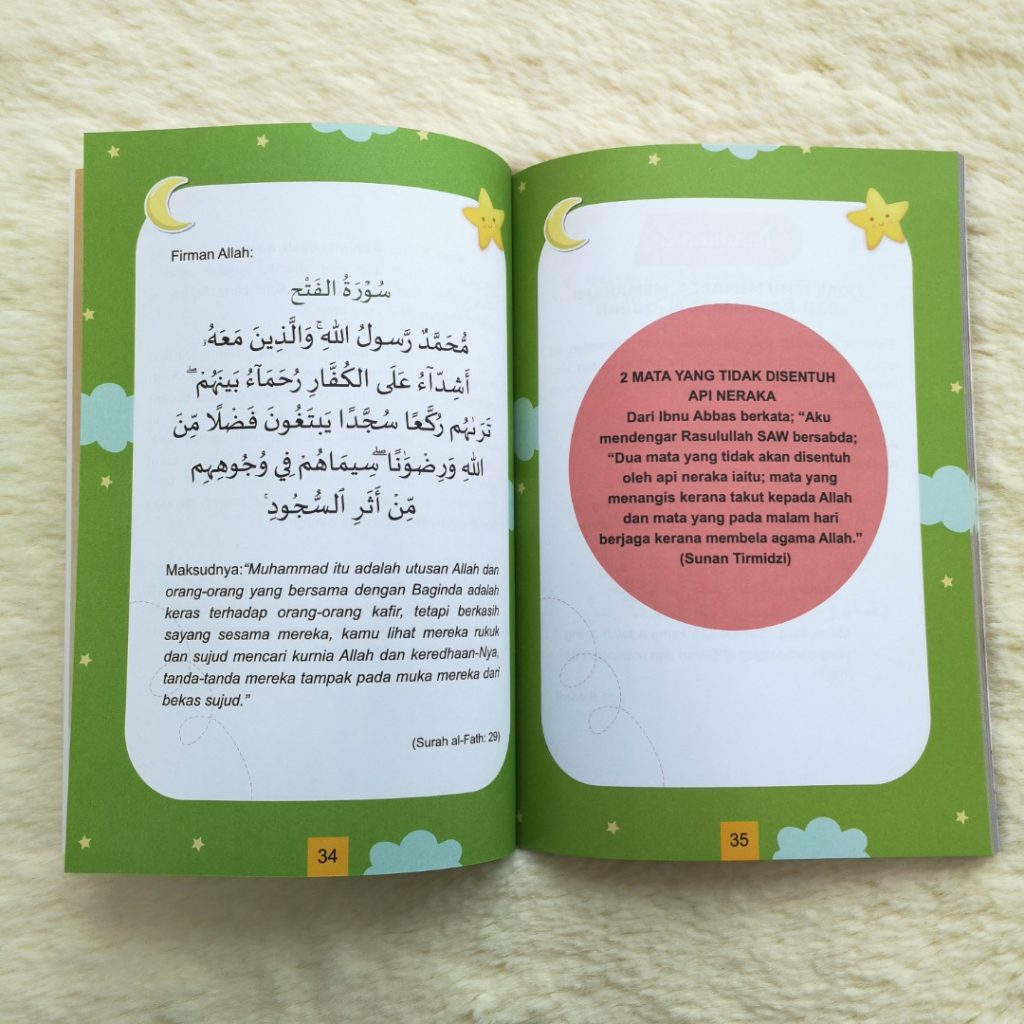 Firman Allah:
سُوْرَةُ الفَتْح
مُّحَمَّدٌ رَّسولُ اللهِ ۚ وَالَّذِينَ مَعَهُۥ
أَشِدَّآءُ عَلَى الكُفَّارِ رُحَمَآءُ بَينَهُمْ ۖ
تَرَىٰهُم رُكَّعًا سُجَّدًا يَبتَغُونَ فَضْلًا مِّنَ
اللهِ وَرِضْوَٰنًا ۖ سِيمَاهُمْ فِي وُجُوهِهِم
مِّنْ أَثَرِ ٱلسُّجُودِ ۚ
Maksudnya:“Muhammad itu adalah utusan Allah dan
orang-orang yang bersama dengan Baginda adalah
keras terhadap orang-orang kafir, tetapi berkasih
sayang sesama mereka, kamu lihat mereka rukuk
dan sujud mencari kurnia Allah dan keredhaan-Nya,
tanda-tanda mereka tampak pada muka mereka dari
bekas sujud.”
(Surah al-Fath: 29)
34
2 MATA YANG TIDAK DISENTUH
API NERAKA
Dari Ibnu Abbas berkata; “Aku
mendengar Rasulullah SAW bersabda;
“Dua mata yang tidak akan disentuh
oleh api neraka iaitu; mata yang
menangis kerana takut kepada Allah
dan mata yang pada malam hari
berjaga kerana membela agama Allah.”
(Sunan Tirmidzi)
35